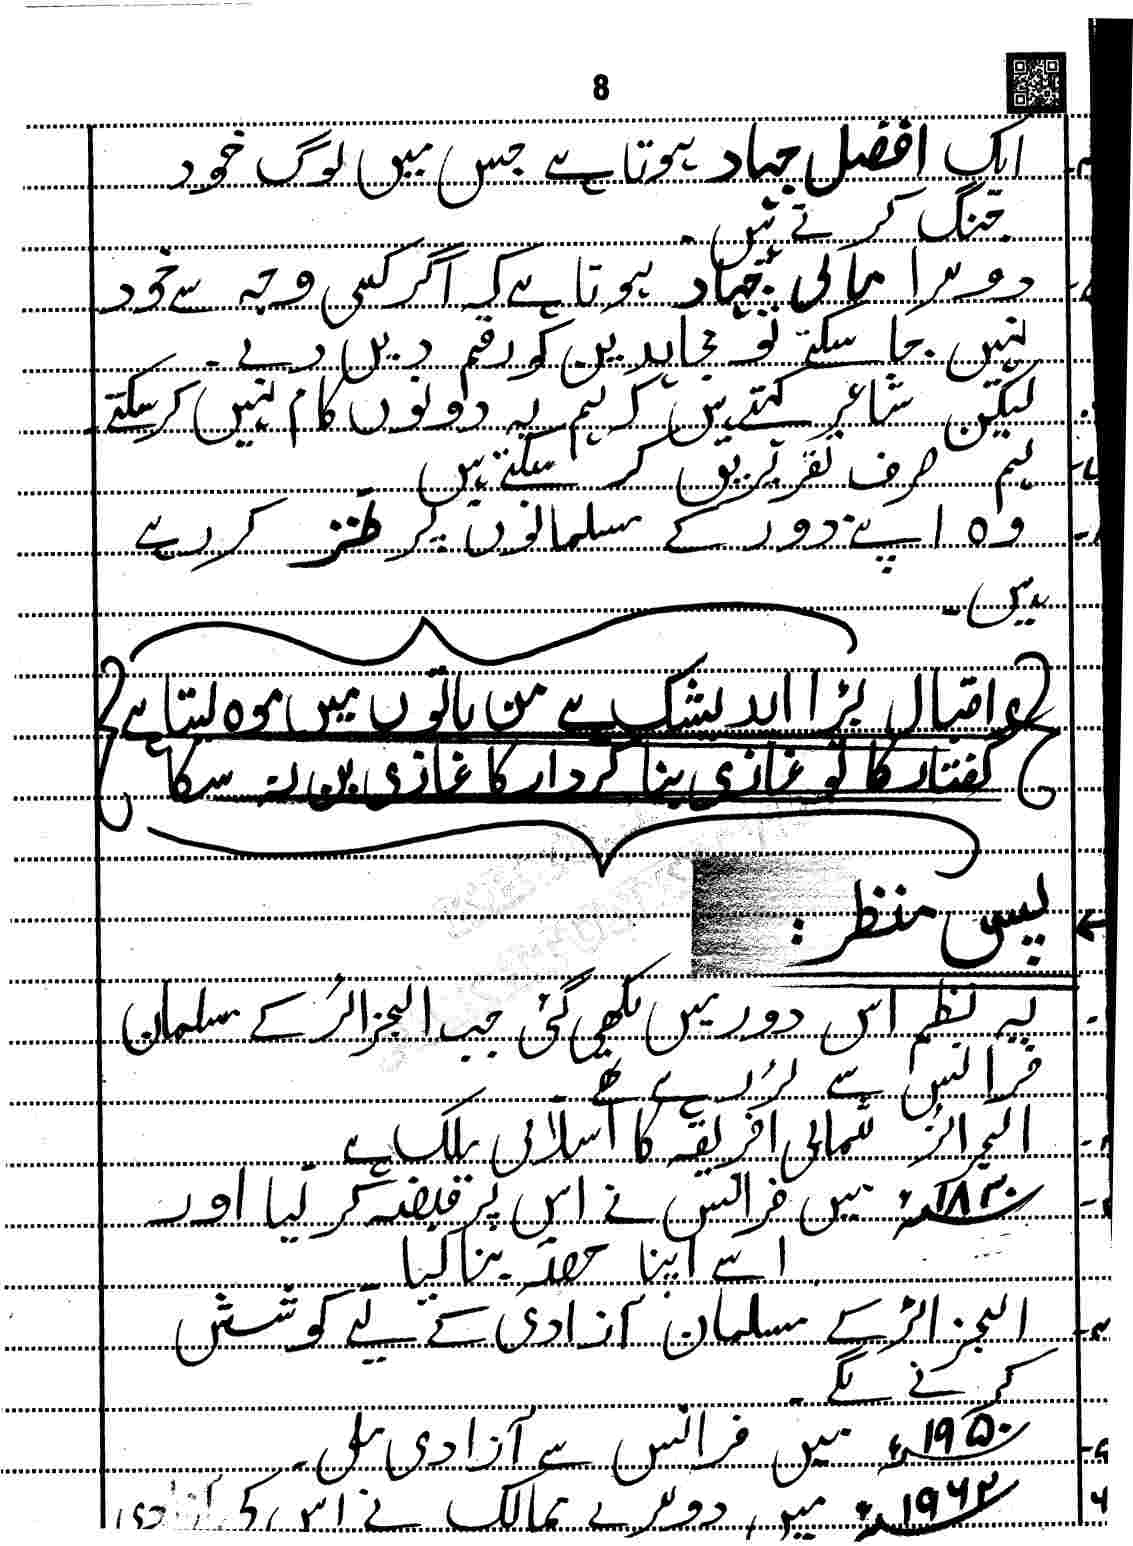 8
ایک افضل جہاد ہوتا ہے جس میں لوگ خود
جنگ کرتے ہیں۔
دوسرا مالی جہاد ہوتا ہے کہ اگر کسی وجہ سے خود
نہیں جا سکتے تو مجاہدین کو رقم دیں دے۔
لیکن شاعر کہتے ہیں کہ ہم یہ دونوں کام نہیں کر سکتے
ہم صرف تقریریں کر سکتے ہیں
وہ اپنے دور کے مسلمانوں پر طنز کر رہے
ہیں۔
اقبال بڑا اپدیشک ہے من باتوں میں موہ لیتا ہے
گفتار کا تو غازی بنا کردار کا غازی بن نہ سکا
پس منظر :
یہ نظم اس دور میں لکھی گئی جب الجزائر کے مسلمان
فرانس سے لڑ رہے تھے
الجزائر شمالی افریقہ کا اسلامی ملک ہے
۱۸۳۰ء میں فرانس نے اس پر قبضہ کر لیا اور
اسے اپنا حصہ بنا لیا
الجزائر کے مسلمان آزادی کے لیے کوشش
کرنے لگے۔
۱۹۵۰ء میں فرانس سے آزادی ملی۔
۱۹۶۲ء میں دوسرے ممالک نے اس کی آزادی